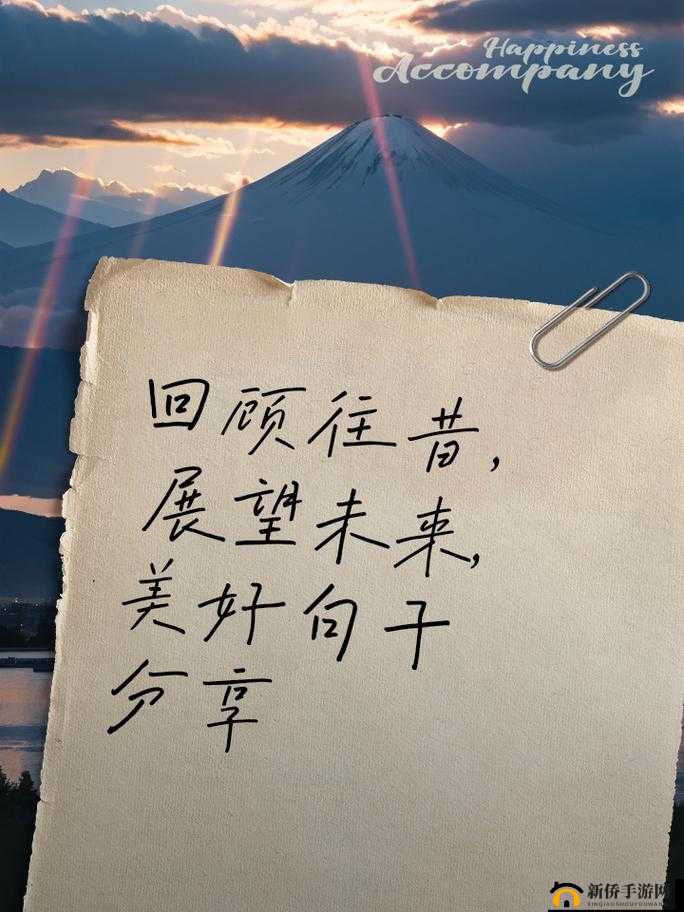 Happiness
Accompany
回顾往昔,
展望未来,
美好句子
分享
新侨手游网
XINQIAOSHOUYOUWANG